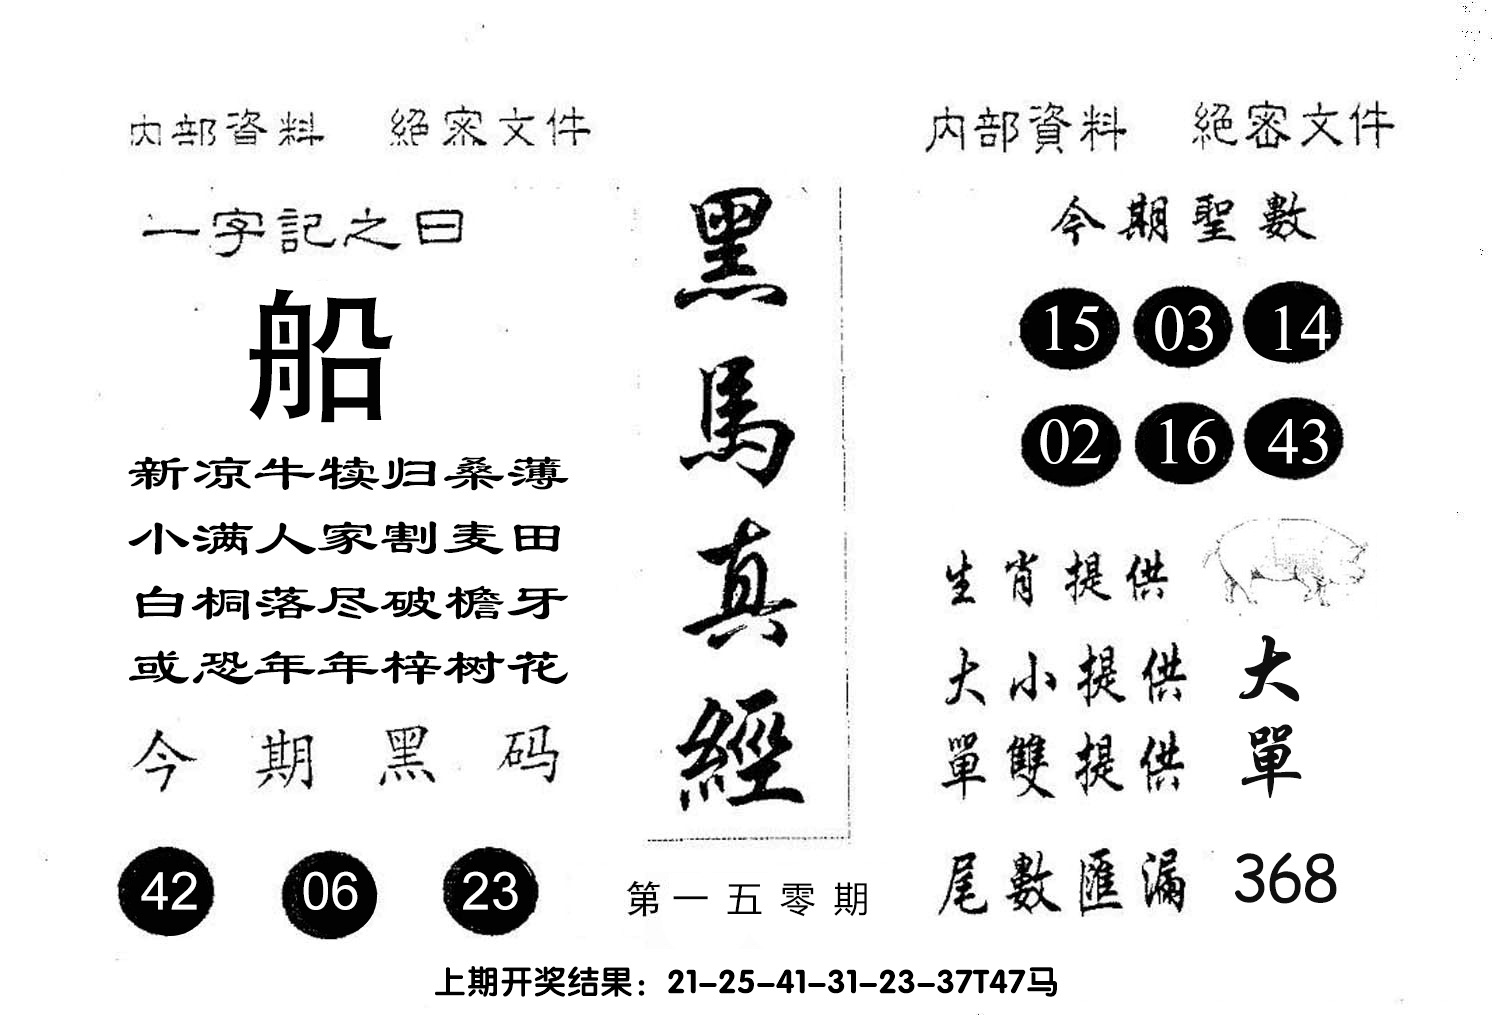 内部資料 絕密文件
一字記之曰
船
新凉牛犊归桑薄
小满人家割麦田
白桐落尽破檐牙
或恐年年梓树花
今期黑码
42 06 23
黑馬真經
第一五零期
内部資料 絕密文件
今期聖數
15 03 14
02 16 43
生肖提供
大小提供 大
單雙提供 單
尾數匯漏 368
上期开奖结果：21-25-41-31-23-37T47马